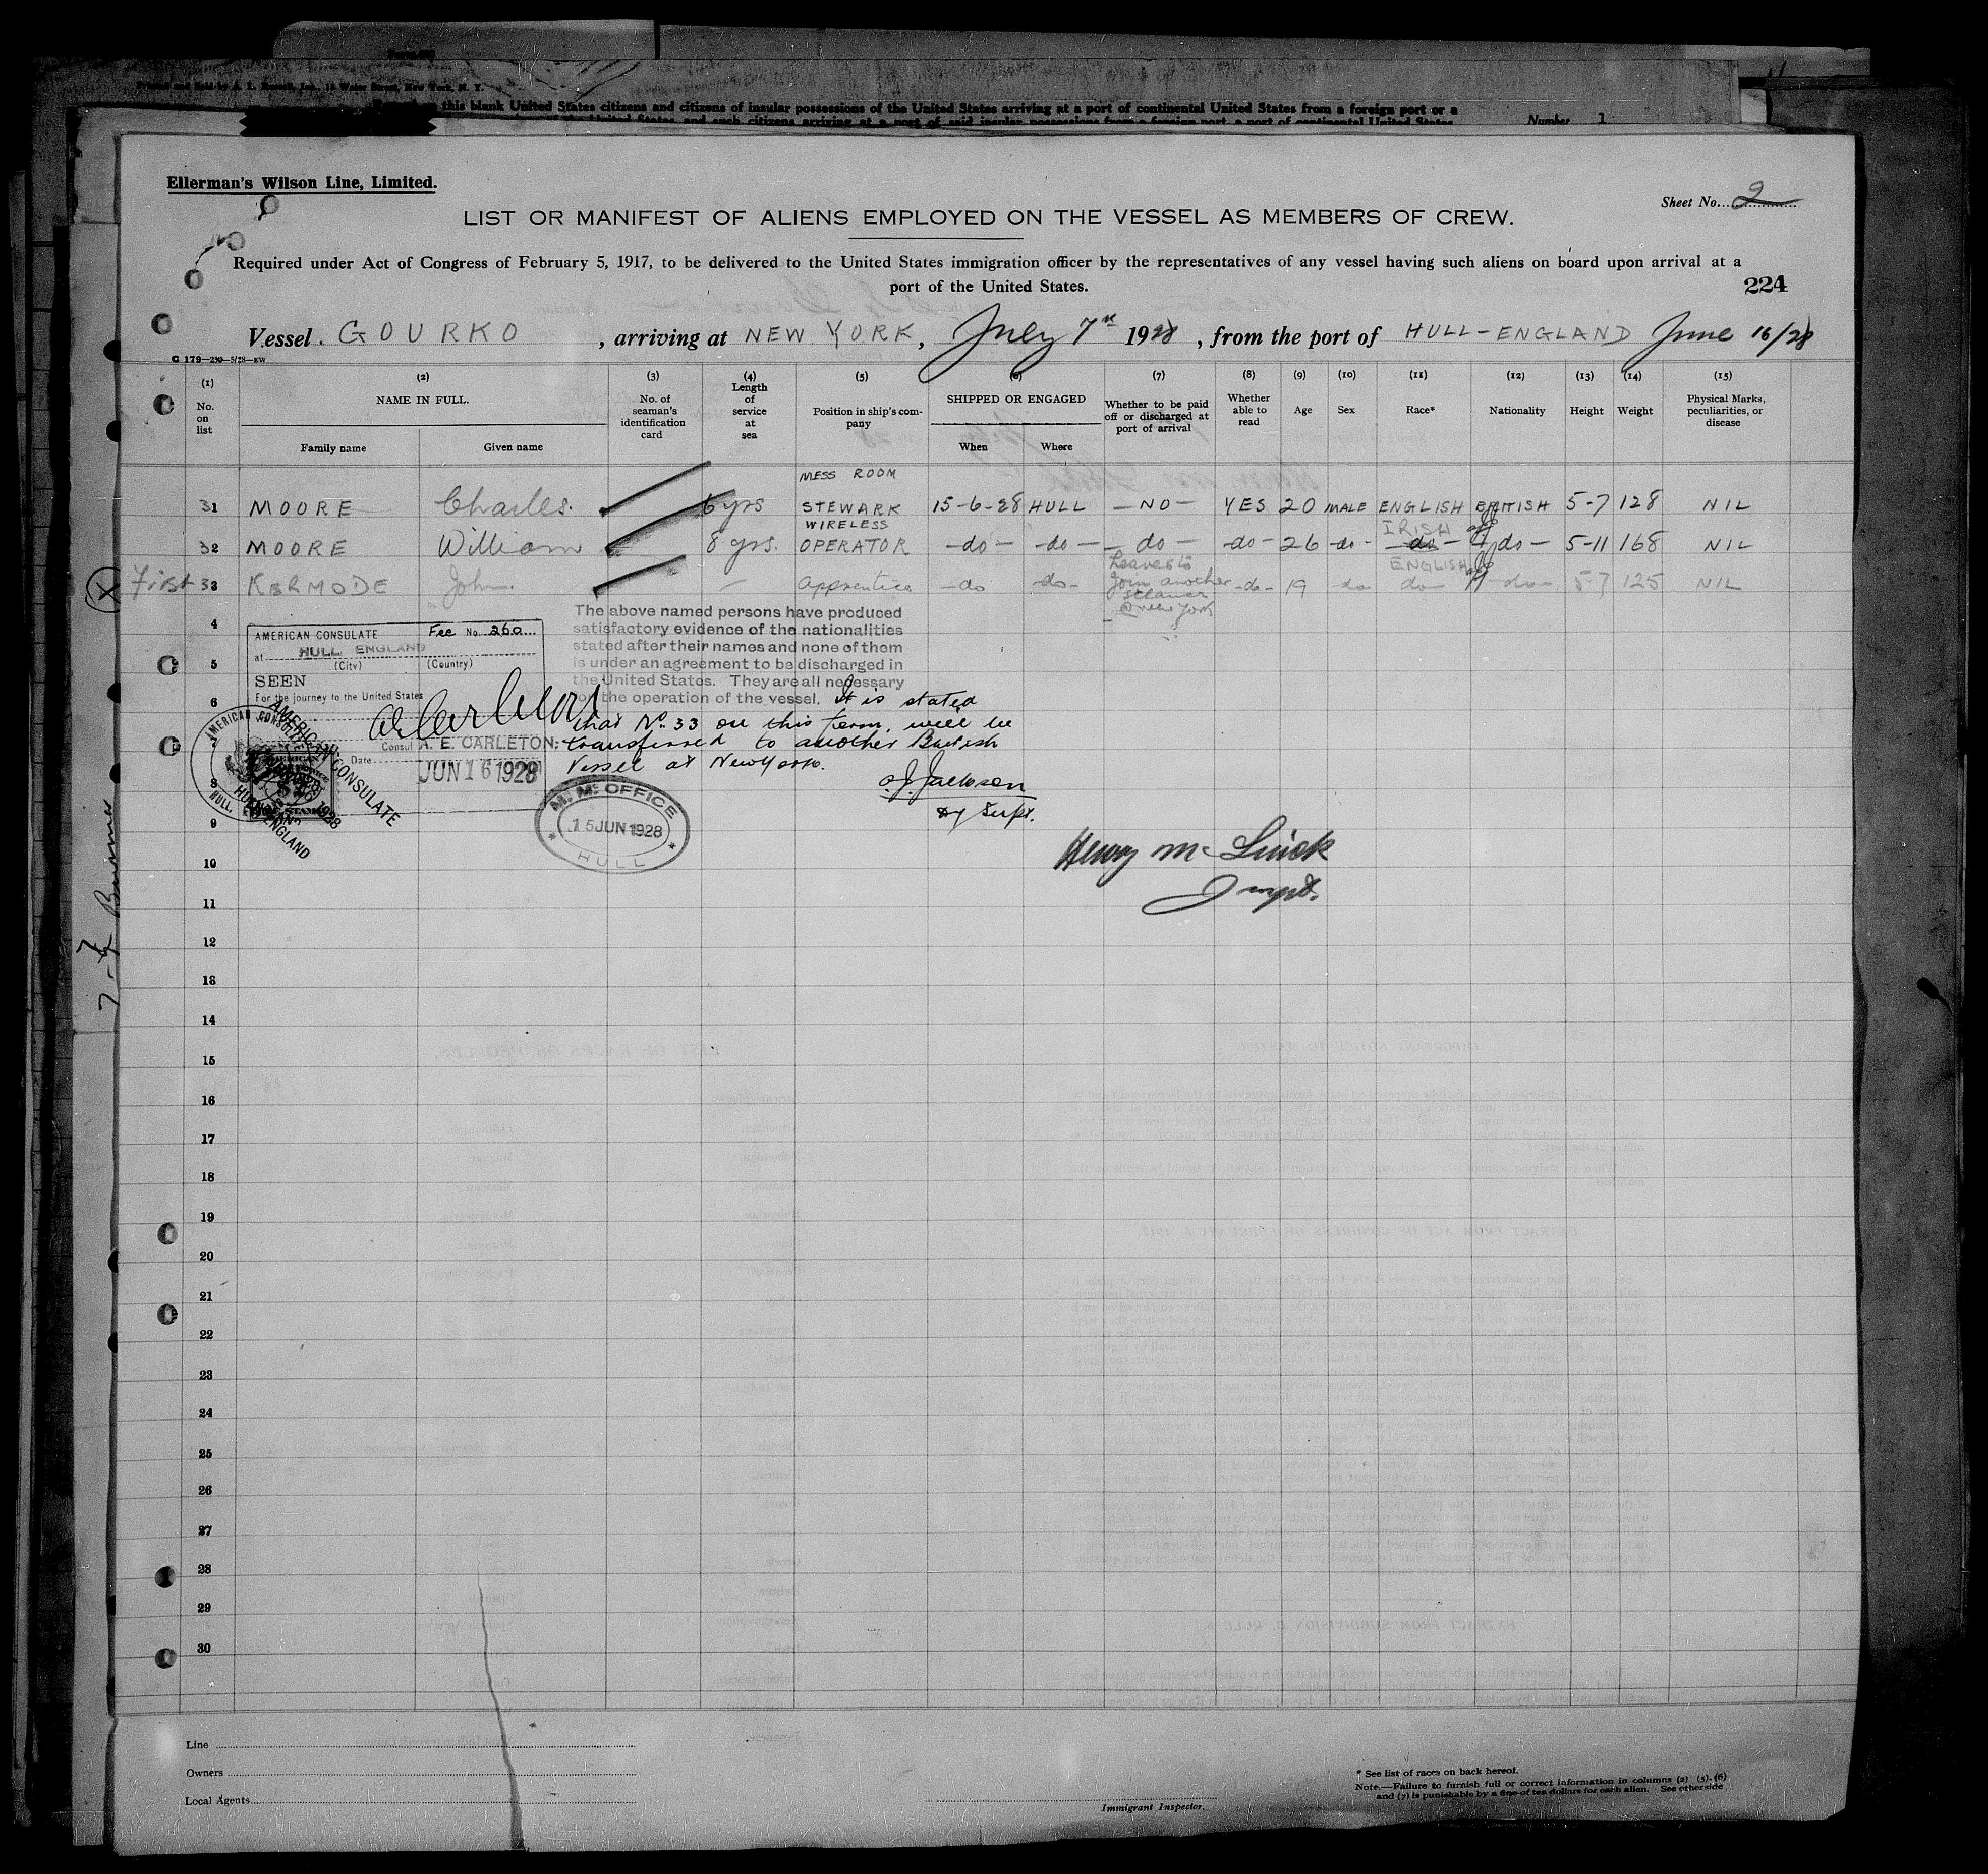 Printed and Sold by A. L. Russell, Inc., 18 Water Street, New York, N. Y.
this blank United States citizens and citizens of insular possessions of the United States arriving at a port of continental United States from a foreign port or a
Number 1
Ellerman's Wilson Line, Limited.
Sheet No. 2
LIST OR MANIFEST OF ALIENS EMPLOYED ON THE VESSEL AS MEMBERS OF CREW.
Required under Act of Congress of February 5, 1917, to be delivered to the United States immigration officer by the representatives of any vessel having such aliens on board upon arrival at a
port of the United States.
224
Vessel GOURKO, arriving at NEW YORK, July 7th 1928, from the port of HULL-ENGLAND June 16/28
G 179-250-5/28-EW
(1) (2) (3) (4) (5) (6) (7) (8) (9) (10) (11) (12) (13) (14) (15)
No. on list
NAME IN FULL.
Family name
Given name
No. of seaman's identification card
Length of service at sea
Position in ship's company
SHIPPED OR ENGAGED
When
Where
Whether to be paid off or discharged at port of arrival
Whether able to read
Age
Sex
Race*
Nationality
Height
Weight
Physical Marks, peculiarities, or disease
MESS ROOM
31 MOORE Charles. 6 yrs STEWARK 15-6-28 HULL -NO- YES 20 MALE ENGLISH BRITISH 5-7 128 NIL
WIRELESS IRISH
32 MOORE William 8 yrs. OPERATOR -do- -do- -do- -do- 26 -do- -do- -do- 5-11 168 NIL
Leaves to ENGLISH
X First 33 KERMODE John. - Apprentice -do -do- Join another -do- 19 do do -do- 5-7 125 NIL
steamer
@ New York
The above named persons have produced
satisfactory evidence of the nationalities
stated after their names and none of them
is under an agreement to be discharged in
the United States. They are all necessary
for the operation of the vessel. It is stated
that No. 33 on this form, will be
transferred to another British
Vessel at New York.
O. J. Jackson
Dy Supt.
AMERICAN CONSULATE Fee No. 260
at HULL ENGLAND
(City) (Country)
SEEN
For the journey to the United States
A E Carleton
Consul A. E. CARLETON.
Date JUN 16 1928
AMERICAN CONSULATE
HULL, ENGLAND
AMERICAN CONSULATE
HULL
ENGLAND
M. M. OFFICE
15 JUN 1928
HULL
Henry Mc
Inspt.
7-7
4
5
6
7
8
9
10
11
12
13
14
15
16
17
18
19
20
21
22
23
24
25
26
27
28
29
30
Line
Owners
Local Agents
Immigrant Inspector.
* See list of races on back hereof.
Note.—Failure to furnish full or correct information in columns (2) (5), (6)
and (7) is punishable by a fine of ten dollars for each alien. See otherside